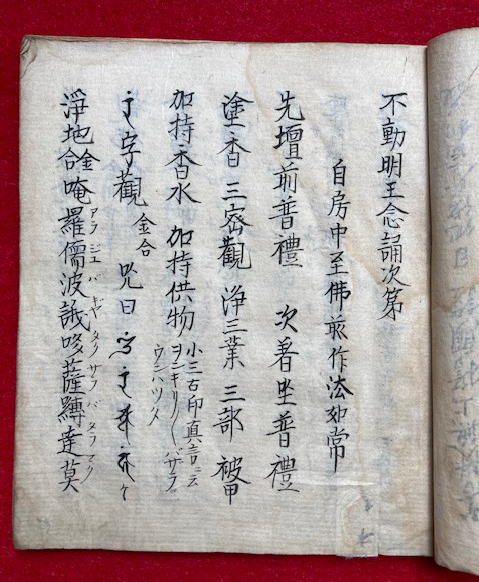 不動明王念誦次第
自房中至佛前作法如常
先壇前普禮 次著坐普禮
塗香 三密觀 淨三業 三部 被甲
加持香水 加持供物 小三古印真言ニ云
ヲンキリ〳〵バザラ
ウンハツタ
字觀 金合 咒曰
淨地 金合 唵羅儒波誐哆薩縛達莫
アラジエバギヤタクサラバタラマク